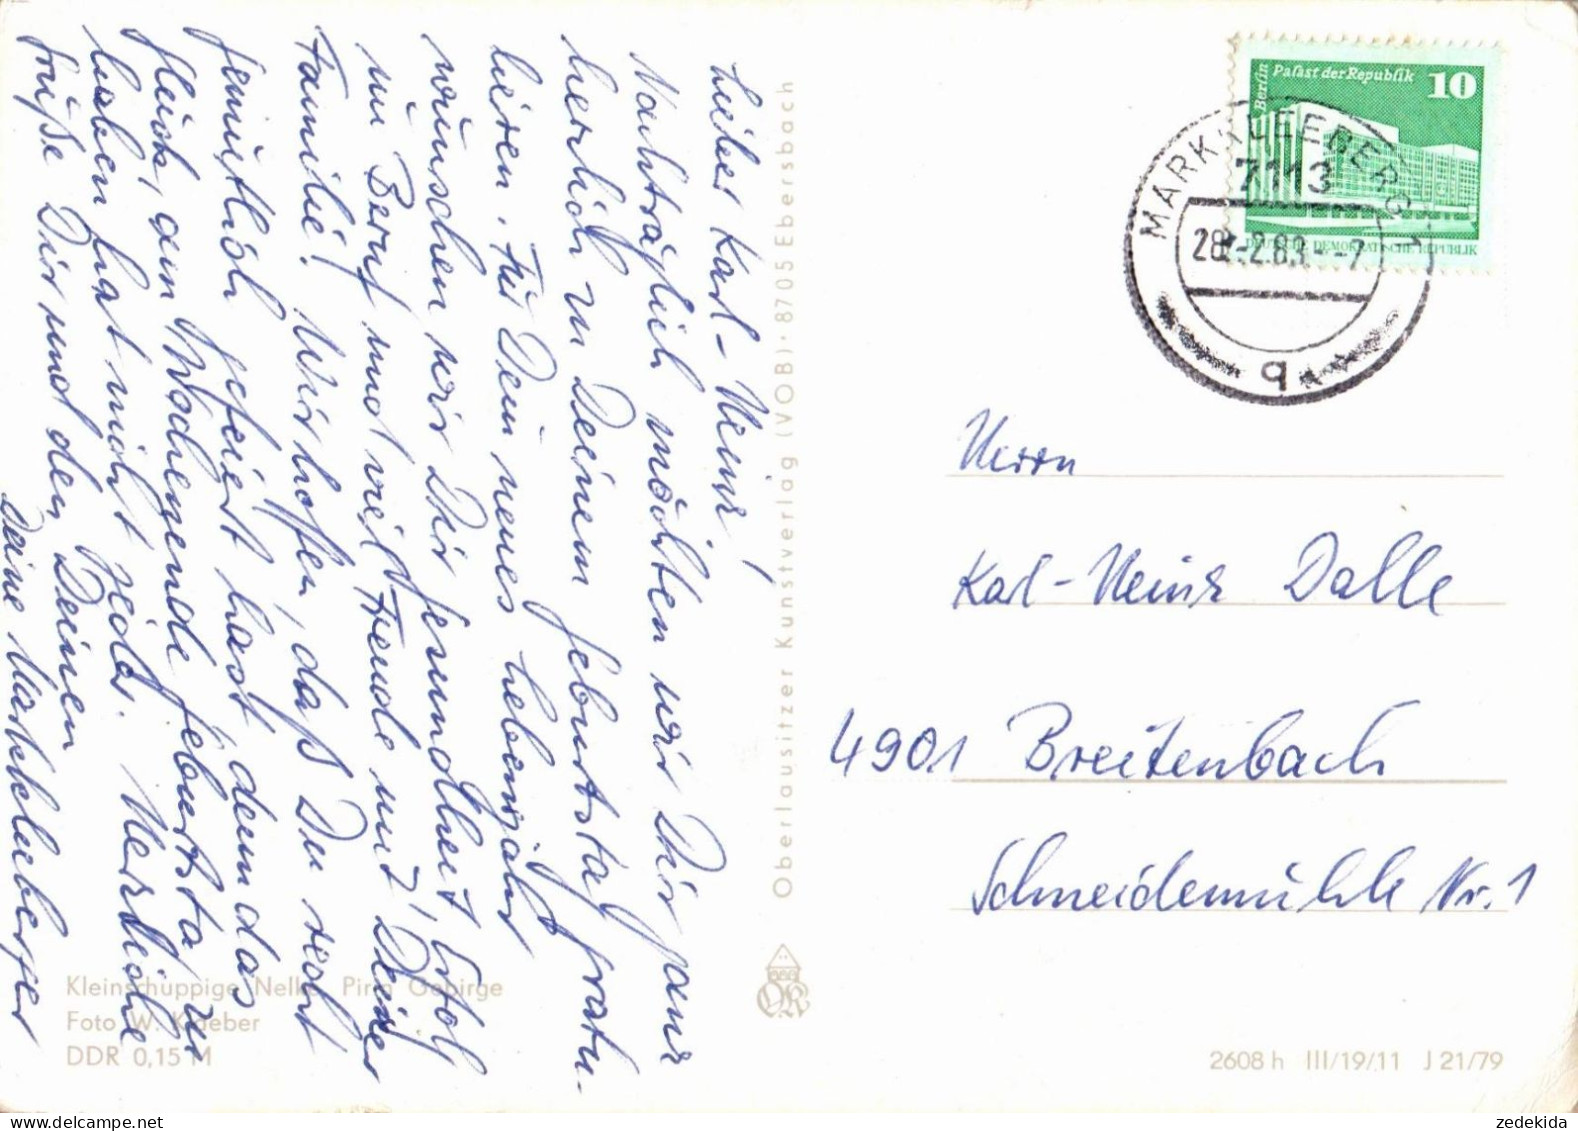 Lieber Karl-Heinz!
Nachträglich möchten wir Dir ganz
herzlich zu Deinem Geburtstag gratu-
lieren. Für Dein neues Lebensjahr
wünschen wir Dir Gesundheit, Erfolg
im Beruf und viel Freude mit Deiner
Familie! Wir hoffen, daß Du recht
gemütlich gefeiert hast, denn das
Glück, am Wochenende Geburtstag zu
haben, hat nicht jeder. Herzliche
Grüße Dir und den Deinen
Deine Markkleeberger
Oberlausitzer Kunstverlag (VOB) · 8705 Ebersbach
Kleinschuppige Nelke Pirin Gebirge
Foto W. Kloeber
DDR 0,15 M
Berlin Palast der Republik 10
DEUTSCHE DEMOKRATISCHE REPUBLIK
MARKKLEEBERG 1
7113
28.-2.83.--7
q
Herrn
Karl-Heinz Dalle
4901 Breitenbach
Schneidemühle Nr. 1
2608 h III/19/11 J 21/79
zedekida